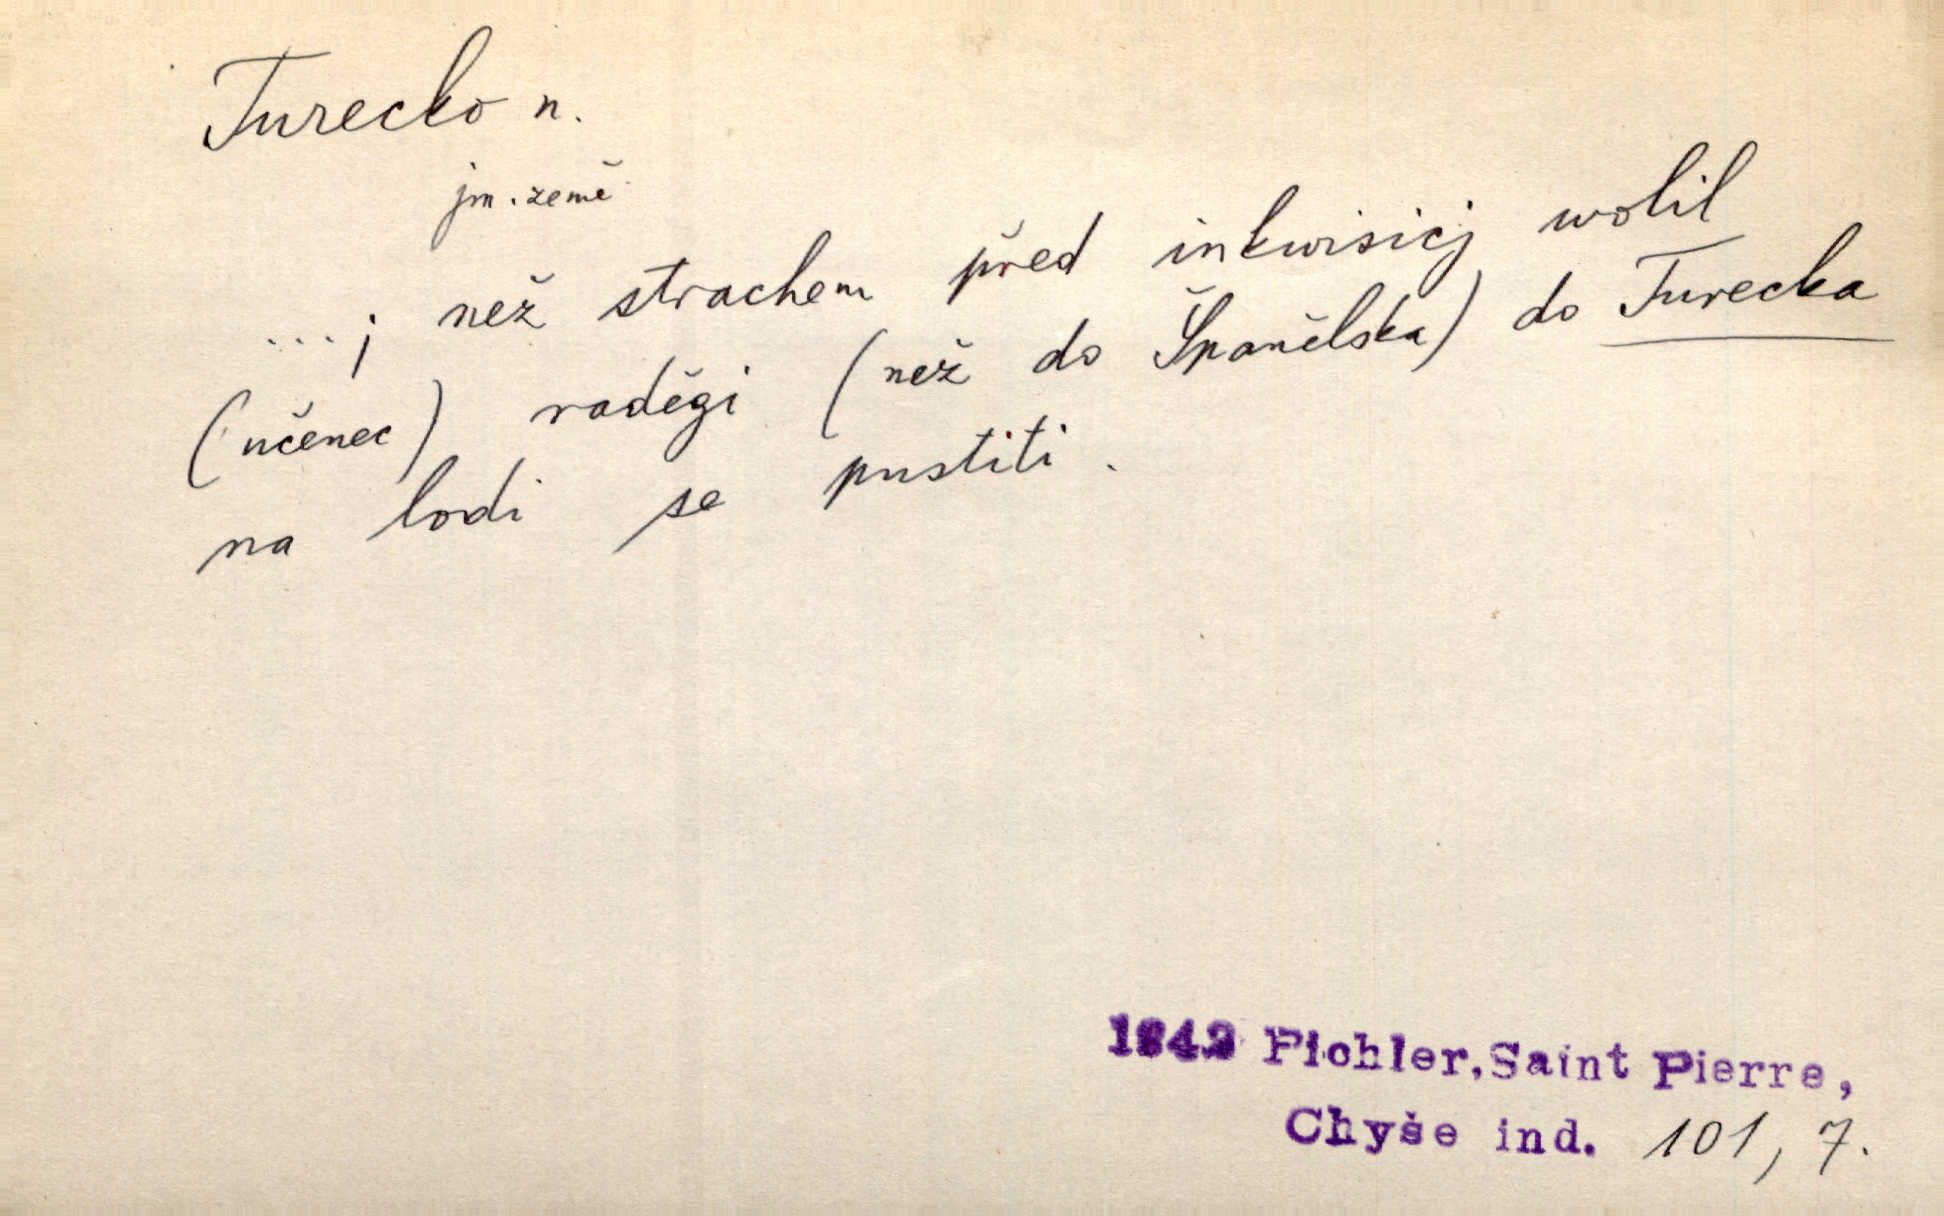 Turecko n.
jm. země
...; než strachem před inkwisicj wolil
(učenec) raděgi (než do Španělska) do Turecka
na lodi se pustiti.
1842 Pichler, Saint Pierre,
Chyše ind. 101, 7.